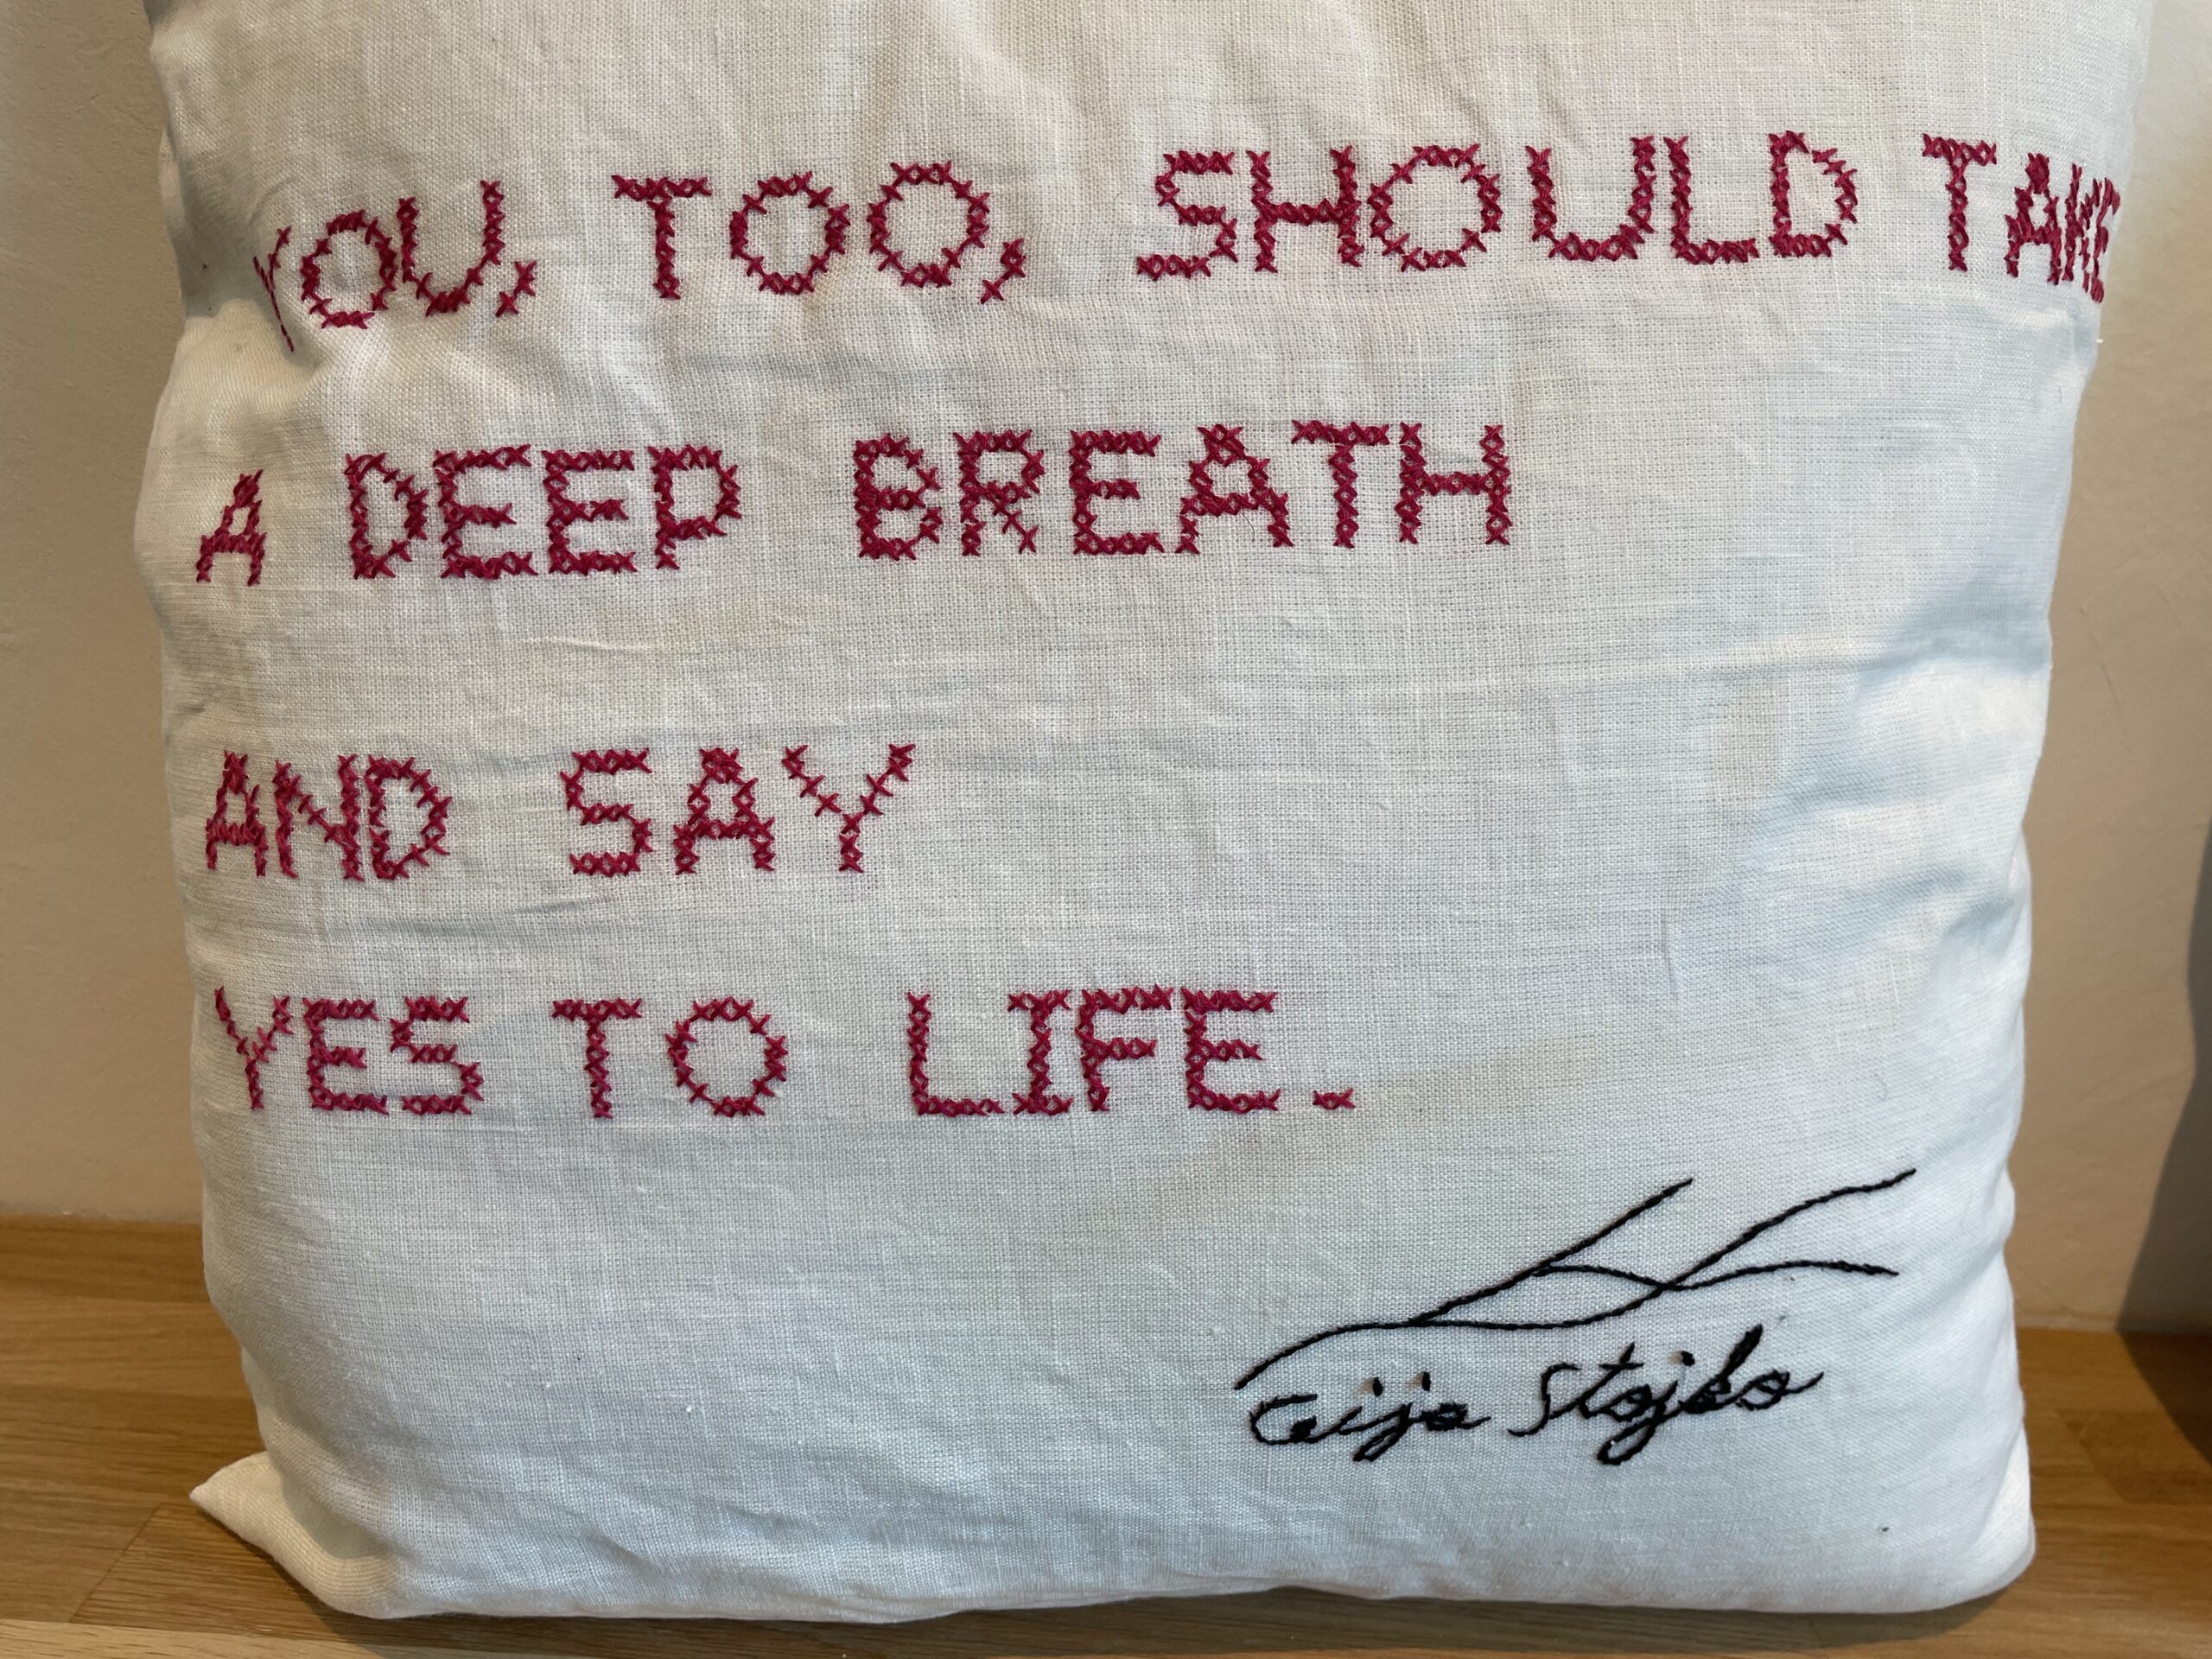 YOU, TOO, SHOULD TAKE
A DEEP BREATH
AND SAY
YES TO LIFE.
Ceija Stojko